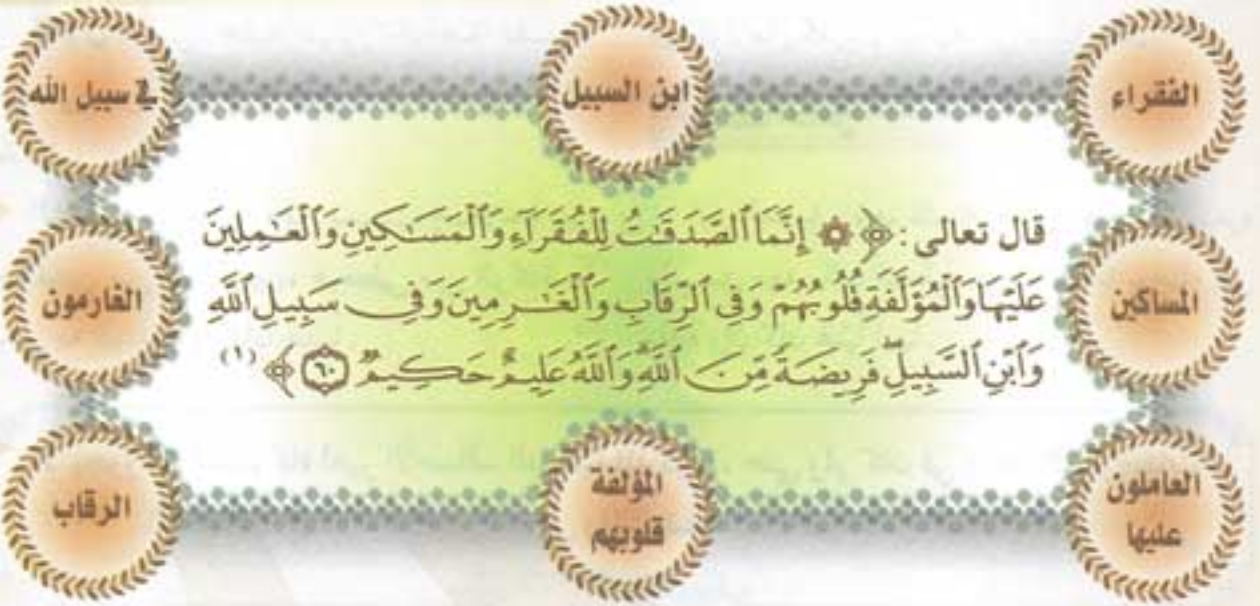 الفقراء
ابن السبيل
في سبيل الله
قال تعالى: ﴿ ۞ إِنَّمَا ٱلصَّدَقَٰتُ لِلْفُقَرَآءِ وَٱلْمَسَٰكِينِ وَٱلْعَٰمِلِينَ
عَلَيْهَا وَٱلْمُؤَلَّفَةِ قُلُوبُهُمْ وَفِى ٱلرِّقَابِ وَٱلْغَٰرِمِينَ وَفِى سَبِيلِ ٱللَّهِ
وَٱبْنِ ٱلسَّبِيلِ ۖ فَرِيضَةً مِّنَ ٱللَّهِ ۗ وَٱللَّهُ عَلِيمٌ حَكِيمٌ ٦٠ ﴾ (١)
المساكين
الغارمون
العاملون
عليها
المؤلفة
قلوبهم
الرقاب